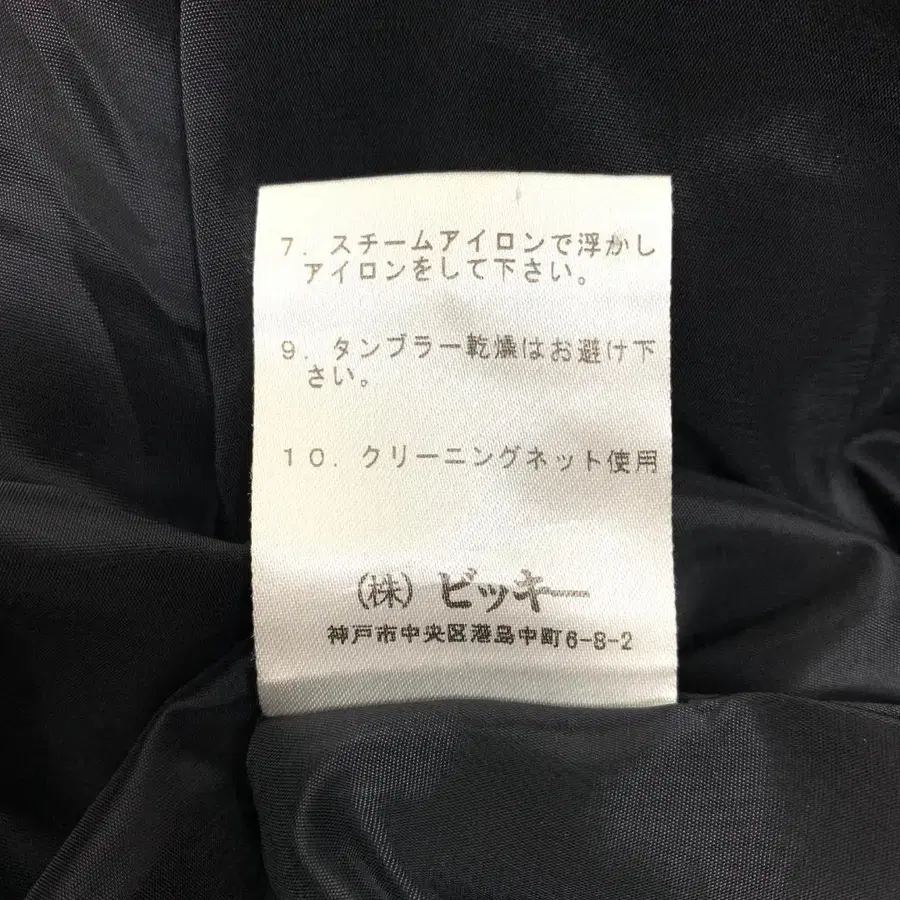 7. スチームアイロンで浮かし
アイロンをして下さい。
9. タンブラー乾燥はお避け下
さい。
10. クリーニングネット使用
(株) ビッキー
神戸市中央区港島中町6-8-2